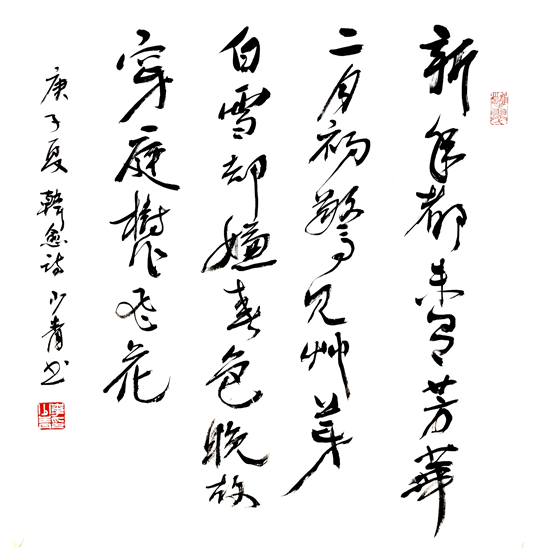 新年都未有芳華
二月初驚見艸芽
白雪却嫌春色晚故
穿庭樹作飛花
庚子夏韓愈詩少青书